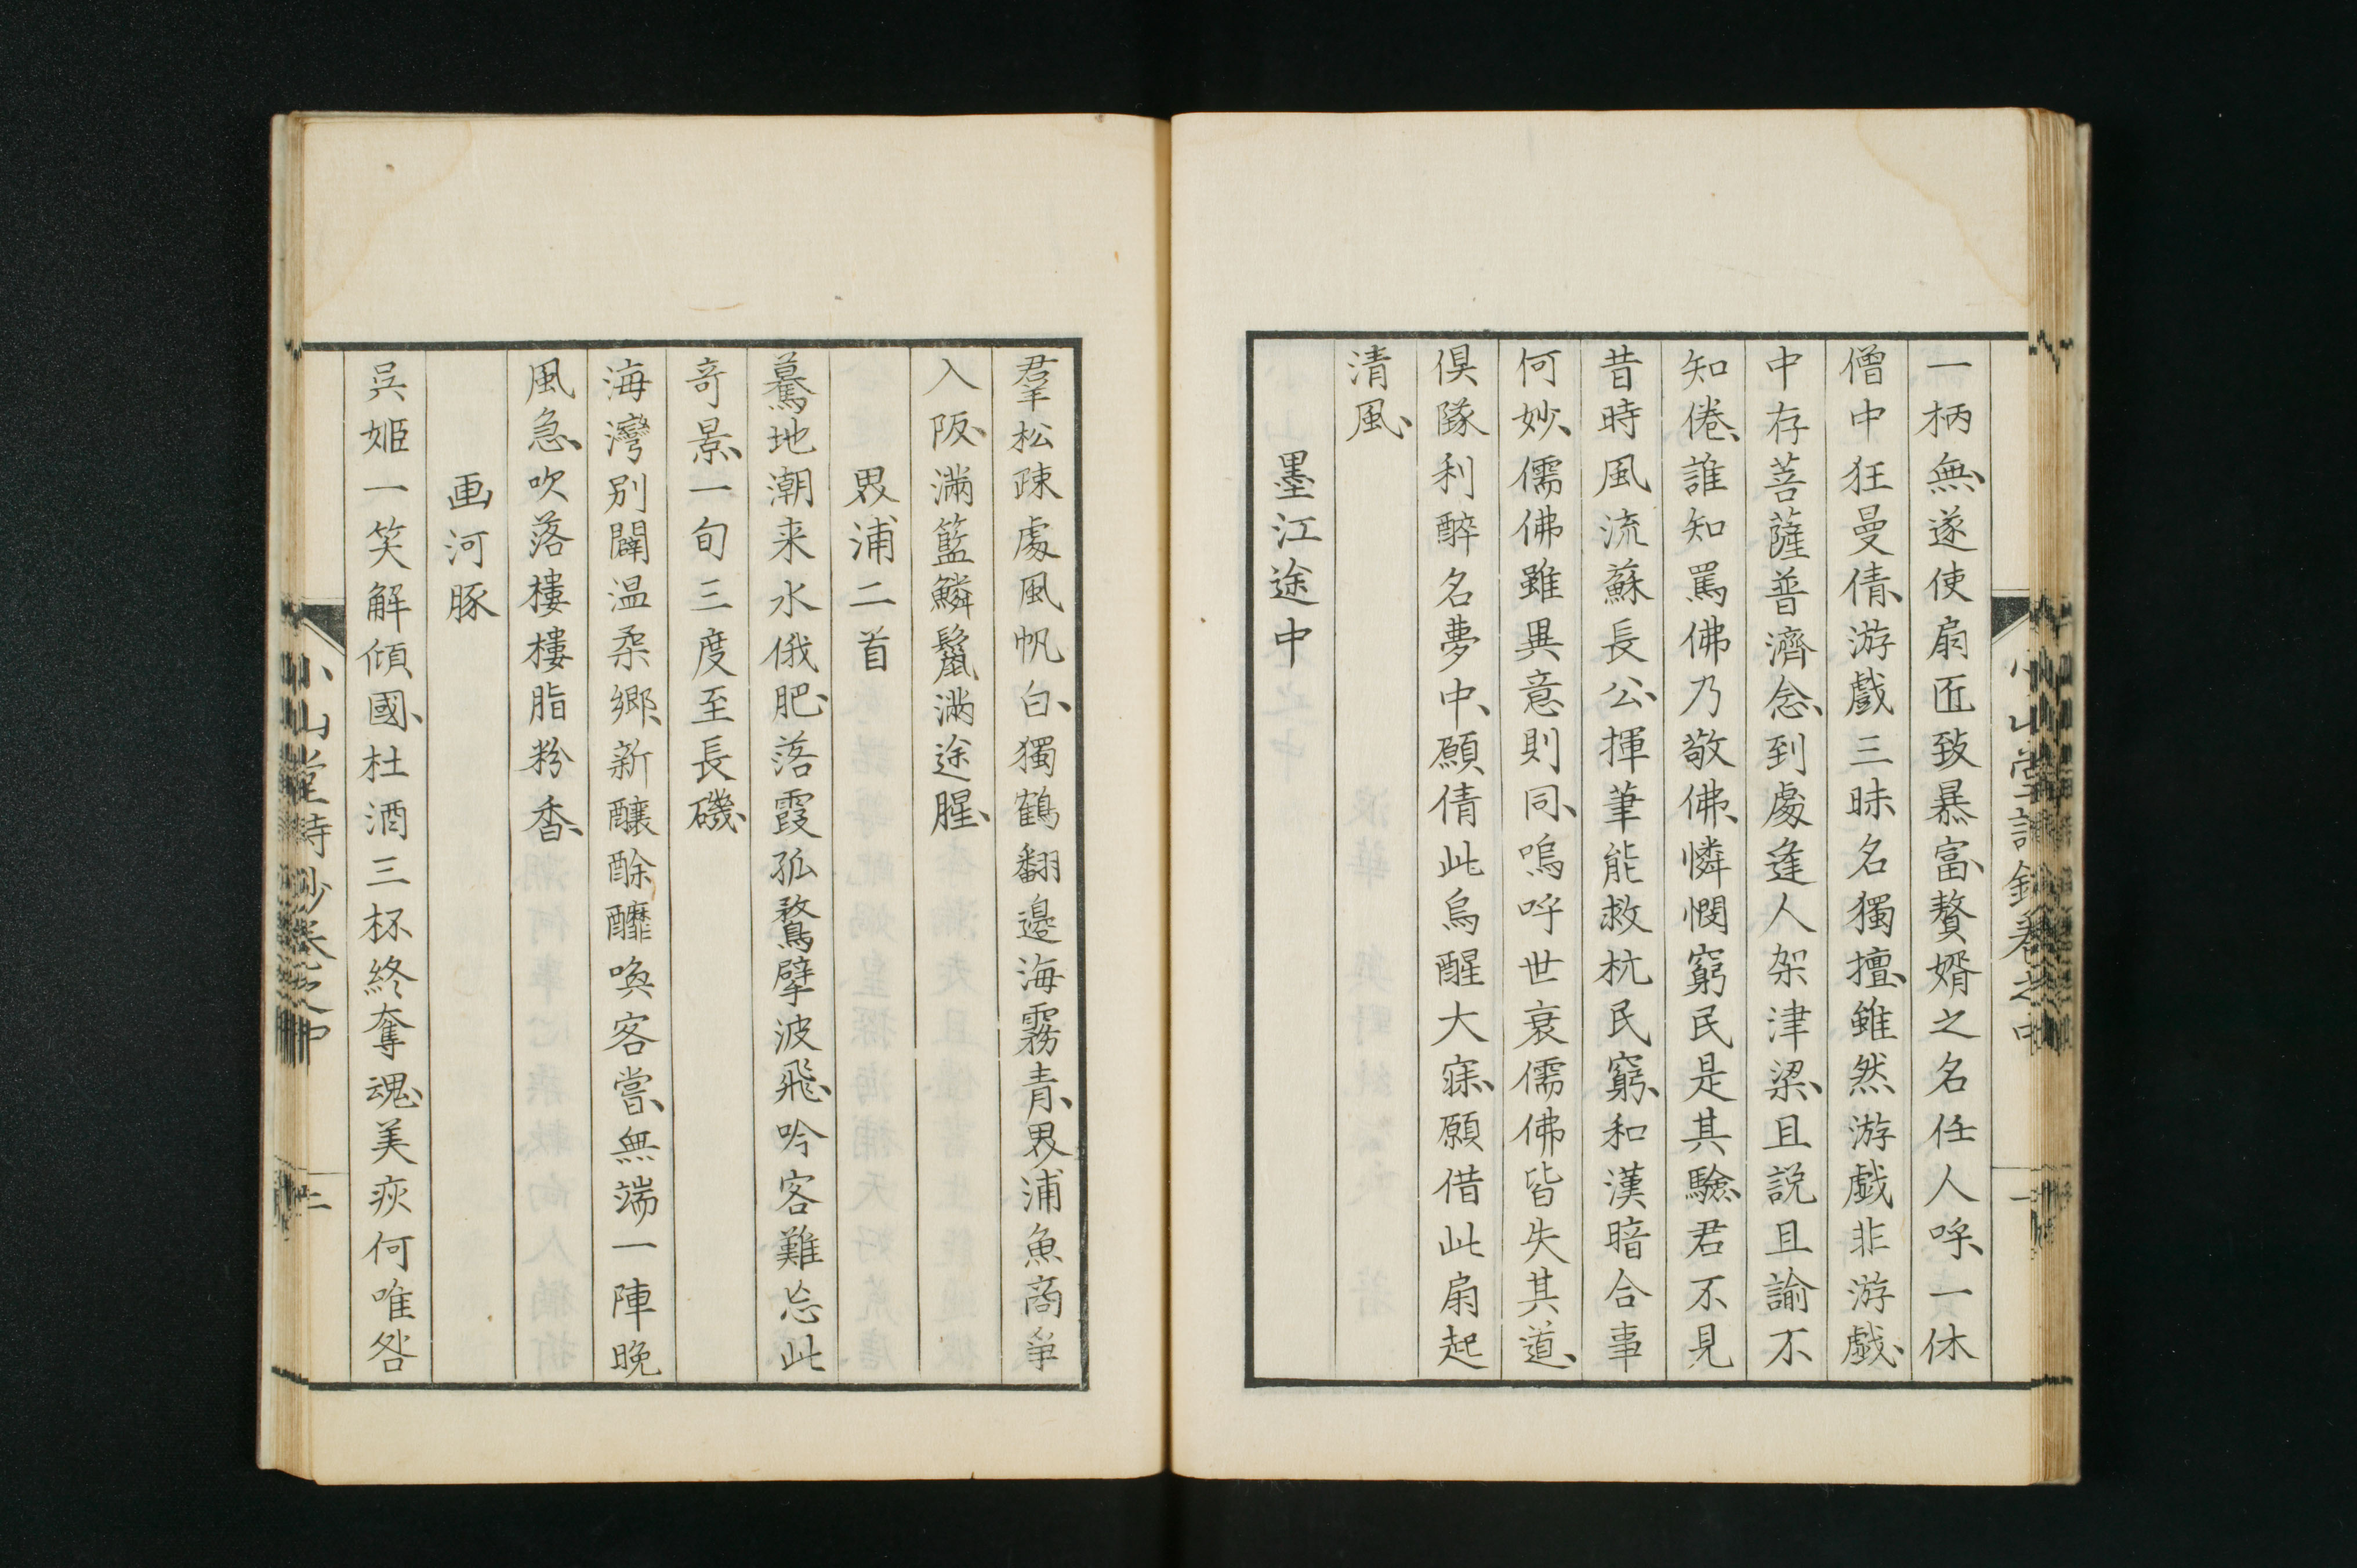 小山堂詩鈔卷之中
一
一柄無、遂使扇匠致暴富、贅婿之名任人呼、一休
僧中狂曼倩、游戲三昧名獨擅、雖然游戯非游戯、
中存菩薩普濟念、到處逢人架津梁、且説且諭不
知倦、誰知罵佛乃敬佛、憐憫窮民是其驗、君不見
昔時風流蘇長公、揮筆能救杭民窮、和漢暗合事
何妙、儒佛雖異意則同、嗚呼世衰儒佛皆失其道、
倶隊利醉名夢中、願倩此烏醒大寐、願借此扇起
清風、
墨江途中
羣松疎處風帆白、獨鶴翻邊海霧青、界浦魚商爭
入阪、滿籃鱗鬣滿途腥、
界浦二首
驀地潮来水俄肥、落霞孤鶩擘波飛、吟客難忘此
竒景、一旬三度至長磯、
海灣別闢温柔郷、新釀酴醾喚客嘗、無端一陣晩
風急、吹落樓樓脂粉香、
画河豚
吳姬一笑解傾國、杜酒三杯終奪魂、美疢何唯咎
小山堂詩鈔卷之中
二